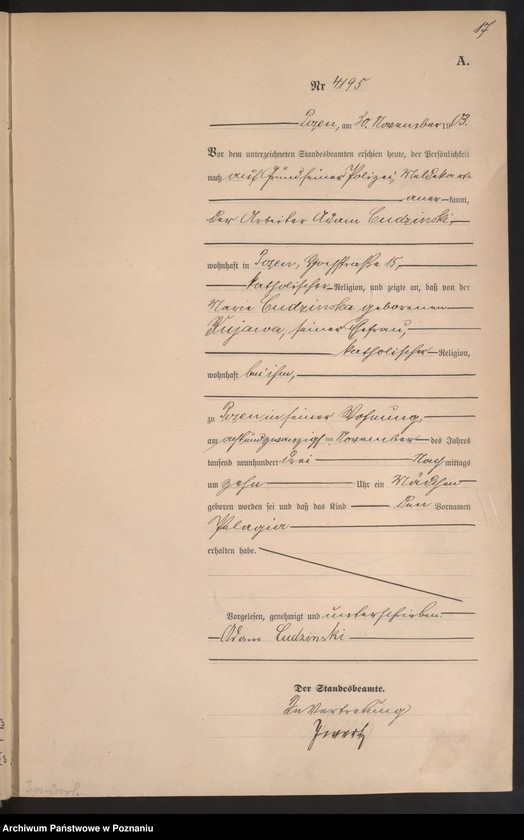 17
A.
Nr 4195
Posen, am 30. November 1903.
Vor dem unterzeichneten Standesbeamten erschien heute, der Persönlichkeit
nach auf Grund seiner Polizei, Meldekarte
anerkannt,
der Arbeiter Adam Cudzinski,
wohnhaft in Posen, 15,
katholischer Religion, und zeigte an, daß von der
Marie Cudzinska geborenen
Kujawa, seiner Ehefrau,
katholischer Religion,
wohnhaft bei ihm,
zu Posen in seiner Wohnung,
am achtundzwanzigsten November des Jahres
tausend neunhundert drei Nachmittags
um zehn Uhr ein Mädchen
geboren worden sei und daß das Kind den Vornamen
Pelagia
erhalten habe.
Vorgelesen, genehmigt und unterschrieben.
Adam Cudzinski
Der Standesbeamte.
In Vertretung
Archiwum Państwowe w Poznaniu